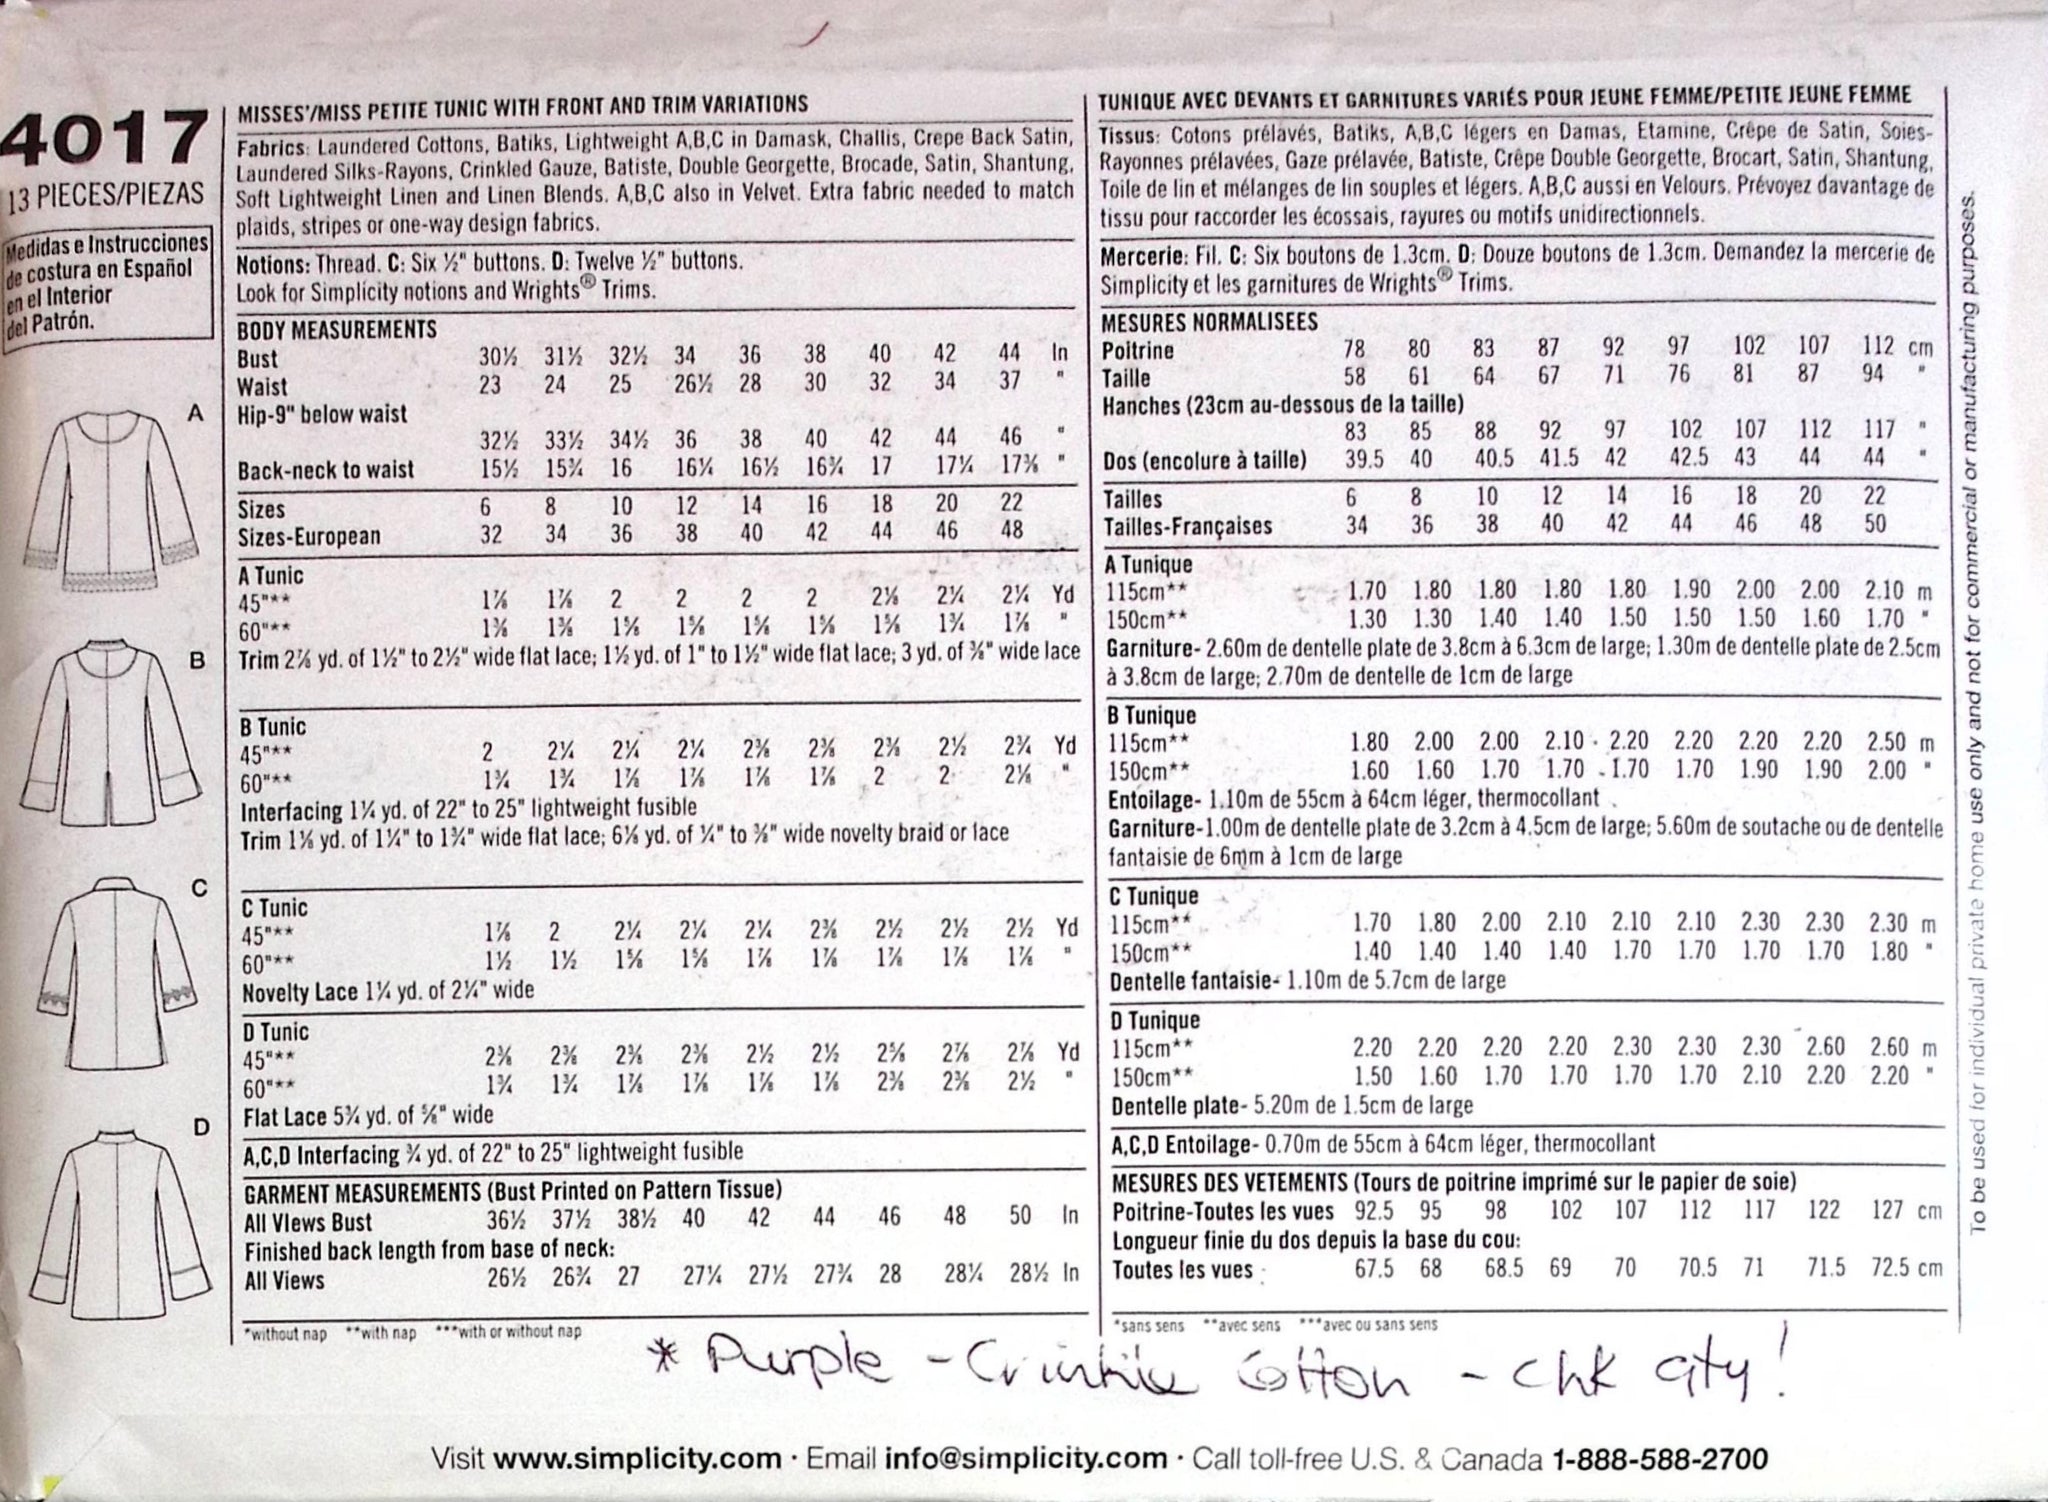 4017
13 PIECES/PIEZAS
Medidas e Instrucciones
de costura en Español
en el Interior
del Patrón.
A
B
C
D
MISSES'/MISS PETITE TUNIC WITH FRONT AND TRIM VARIATIONS
Fabrics: Laundered Cottons, Batiks, Lightweight A,B,C in Damask, Challis, Crepe Back Satin,
Laundered Silks-Rayons, Crinkled Gauze, Batiste, Double Georgette, Brocade, Satin, Shantung,
Soft Lightweight Linen and Linen Blends. A,B,C also in Velvet. Extra fabric needed to match
plaids, stripes or one-way design fabrics.
Notions: Thread. C: Six ½" buttons. D: Twelve ½" buttons.
Look for Simplicity notions and Wrights® Trims.
BODY MEASUREMENTS
Bust 30½ 31½ 32½ 34 36 38 40 42 44 In
Waist 23 24 25 26½ 28 30 32 34 37 "
Hip-9" below waist
32½ 33½ 34½ 36 38 40 42 44 46 "
Back-neck to waist 15½ 15¾ 16 16¼ 16½ 16¾ 17 17¼ 17⅜ "
Sizes 6 8 10 12 14 16 18 20 22
Sizes-European 32 34 36 38 40 42 44 46 48
A Tunic
45"** 1⅞ 1⅞ 2 2 2 2 2⅛ 2¼ 2¼ Yd
60"** 1⅜ 1⅜ 1⅝ 1⅝ 1⅝ 1⅝ 1⅝ 1¾ 1⅞ "
Trim 2⅞ yd. of 1½" to 2½" wide flat lace; 1½ yd. of 1" to 1½" wide flat lace; 3 yd. of ⅜" wide lace
B Tunic
45"** 2 2¼ 2¼ 2¼ 2⅜ 2⅜ 2⅜ 2½ 2¾ Yd
60"** 1¾ 1¾ 1⅞ 1⅞ 1⅞ 1⅞ 2 2 2⅛ "
Interfacing 1¼ yd. of 22" to 25" lightweight fusible
Trim 1⅛ yd. of 1¼" to 1¾" wide flat lace; 6⅛ yd. of ¼" to ⅜" wide novelty braid or lace
C Tunic
45"** 1⅞ 2 2¼ 2¼ 2¼ 2⅜ 2½ 2½ 2½ Yd
60"** 1½ 1½ 1⅝ 1⅝ 1⅞ 1⅞ 1⅞ 1⅞ 1⅞ "
Novelty Lace 1¼ yd. of 2¼" wide
D Tunic
45"** 2⅜ 2⅜ 2⅜ 2⅜ 2½ 2½ 2⅝ 2⅞ 2⅞ Yd
60"** 1¾ 1¾ 1⅞ 1⅞ 1⅞ 1⅞ 2⅜ 2⅜ 2½ "
Flat Lace 5¾ yd. of ⅝" wide
A,C,D Interfacing ¾ yd. of 22" to 25" lightweight fusible
GARMENT MEASUREMENTS (Bust Printed on Pattern Tissue)
All Views Bust 36½ 37½ 38½ 40 42 44 46 48 50 In
Finished back length from base of neck:
All Views 26½ 26¾ 27 27¼ 27½ 27¾ 28 28¼ 28½ In
*without nap **with nap ***with or without nap
TUNIQUE AVEC DEVANTS ET GARNITURES VARIÉS POUR JEUNE FEMME/PETITE JEUNE FEMME
Tissus: Cotons prélavés, Batiks, A,B,C légers en Damas, Etamine, Crêpe de Satin, Soies-
Rayonnes prélavées, Gaze prélavée, Batiste, Crêpe Double Georgette, Brocart, Satin, Shantung,
Toile de lin et mélanges de lin souples et légers. A,B,C aussi en Velours. Prévoyez davantage de
tissu pour raccorder les écossais, rayures ou motifs unidirectionnels.
Mercerie: Fil. C: Six boutons de 1.3cm. D: Douze boutons de 1.3cm. Demandez la mercerie de
Simplicity et les garnitures de Wrights® Trims.
MESURES NORMALISEES
Poitrine 78 80 83 87 92 97 102 107 112 cm
Taille 58 61 64 67 71 76 81 87 94 "
Hanches (23cm au-dessous de la taille)
83 85 88 92 97 102 107 112 117 "
Dos (encolure à taille) 39.5 40 40.5 41.5 42 42.5 43 44 44 "
Tailles 6 8 10 12 14 16 18 20 22
Tailles-Françaises 34 36 38 40 42 44 46 48 50
A Tunique
115cm** 1.70 1.80 1.80 1.80 1.80 1.90 2.00 2.00 2.10 m
150cm** 1.30 1.30 1.40 1.40 1.50 1.50 1.50 1.60 1.70 "
Garniture- 2.60m de dentelle plate de 3.8cm à 6.3cm de large; 1.30m de dentelle plate de 2.5cm
à 3.8cm de large; 2.70m de dentelle de 1cm de large
B Tunique
115cm** 1.80 2.00 2.00 2.10 2.20 2.20 2.20 2.20 2.50 m
150cm** 1.60 1.60 1.70 1.70 1.70 1.70 1.90 1.90 2.00 "
Entoilage- 1.10m de 55cm à 64cm léger, thermocollant
Garniture-1.00m de dentelle plate de 3.2cm à 4.5cm de large; 5.60m de soutache ou de dentelle
fantaisie de 6mm à 1cm de large
C Tunique
115cm** 1.70 1.80 2.00 2.10 2.10 2.10 2.30 2.30 2.30 m
150cm** 1.40 1.40 1.40 1.40 1.70 1.70 1.70 1.70 1.80 "
Dentelle fantaisie- 1.10m de 5.7cm de large
D Tunique
115cm** 2.20 2.20 2.20 2.20 2.30 2.30 2.30 2.60 2.60 m
150cm** 1.50 1.60 1.70 1.70 1.70 1.70 2.10 2.20 2.20 "
Dentelle plate- 5.20m de 1.5cm de large
A,C,D Entoilage- 0.70m de 55cm à 64cm léger, thermocollant
MESURES DES VETEMENTS (Tours de poitrine imprimé sur le papier de soie)
Poitrine-Toutes les vues 92.5 95 98 102 107 112 117 122 127 cm
Longueur finie du dos depuis la base du cou:
Toutes les vues 67.5 68 68.5 69 70 70.5 71 71.5 72.5 cm
*sans sens **avec sens ***avec ou sans sens
To be used for individual private home use only and not for commercial or manufacturing purposes.
* Purple - Crinkle Cotton - chk qty!
Visit www.simplicity.com · Email info@simplicity.com · Call toll-free U.S. & Canada 1-888-588-2700